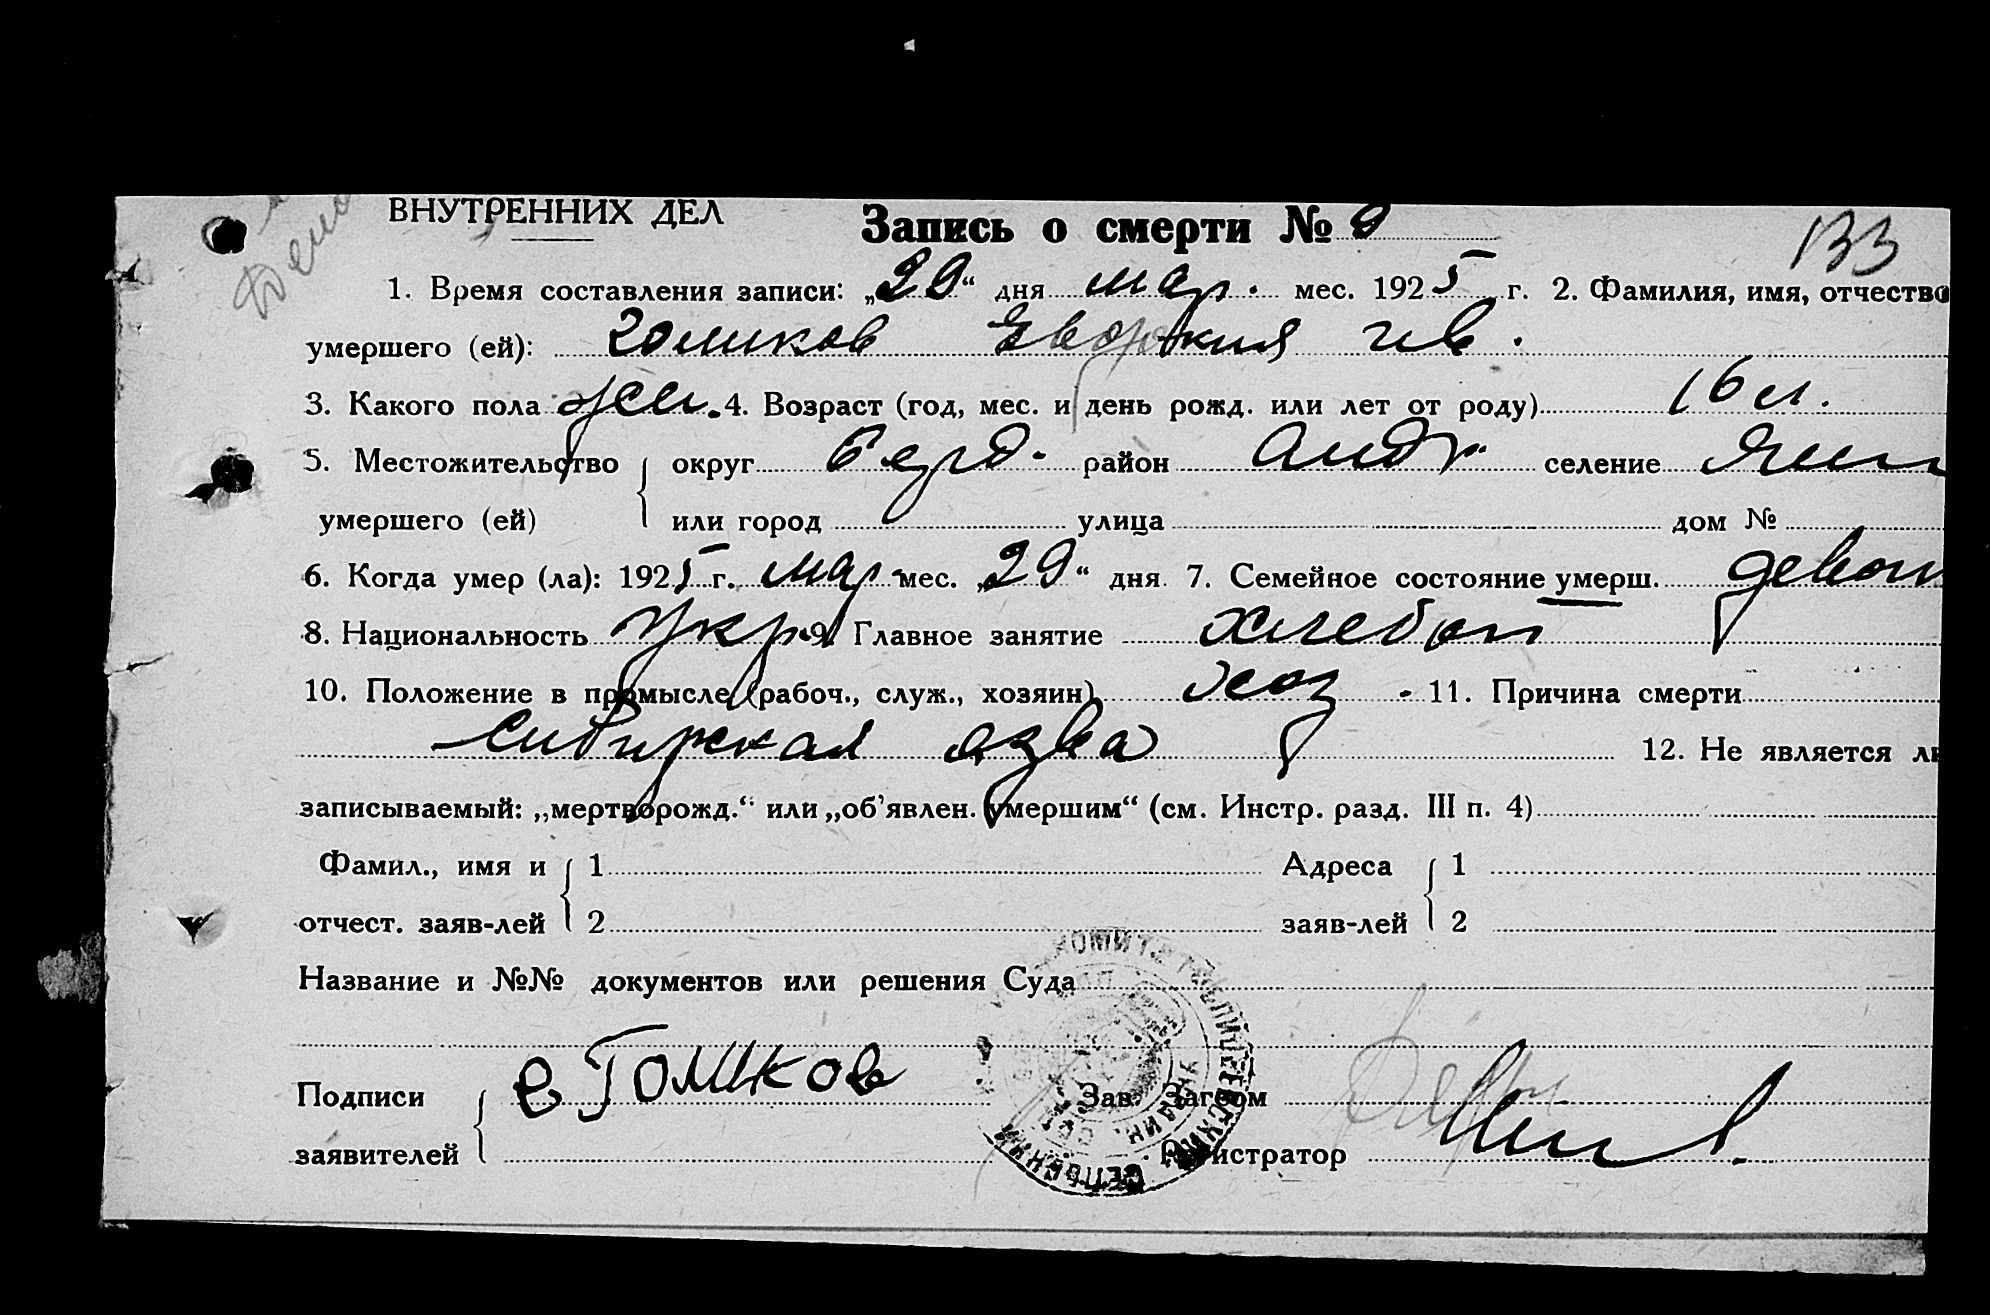 ВНУТРЕННИХ ДЕЛ
Запись о смерти № 9
133
1. Время составления записи: „29“ дня мар. мес. 1925 г. 2. Фамилия, имя, отчество
умершего (ей): Гомиков
3. Какого пола жен. 4. Возраст (год, мес. и день рожд. или лет от роду) 16 л.
5. Местожительство округ Берд. район Андр. селение
умершего (ей) или город улица дом №
6. Когда умер (ла): 1925 г. мар. мес. „29“ дня. 7. Семейное состояние умерш.
8. Национальность Укр. 9. Главное занятие
10. Положение в промысле (рабоч., служ., хозяин) хоз. 11. Причина смерти
Сибирская язва 12. Не является ли
записываемый: „мертворожд.“ или „об’явлен. умершим“ (см. Инстр. разд. III п. 4)
Фамил., имя и 1 Адреса 1
отчест. заяв-лей 2 заяв-лей 2
Название и №№ документов или решения Суда
Подписи Зав. Загсом
заявителей Регистратор